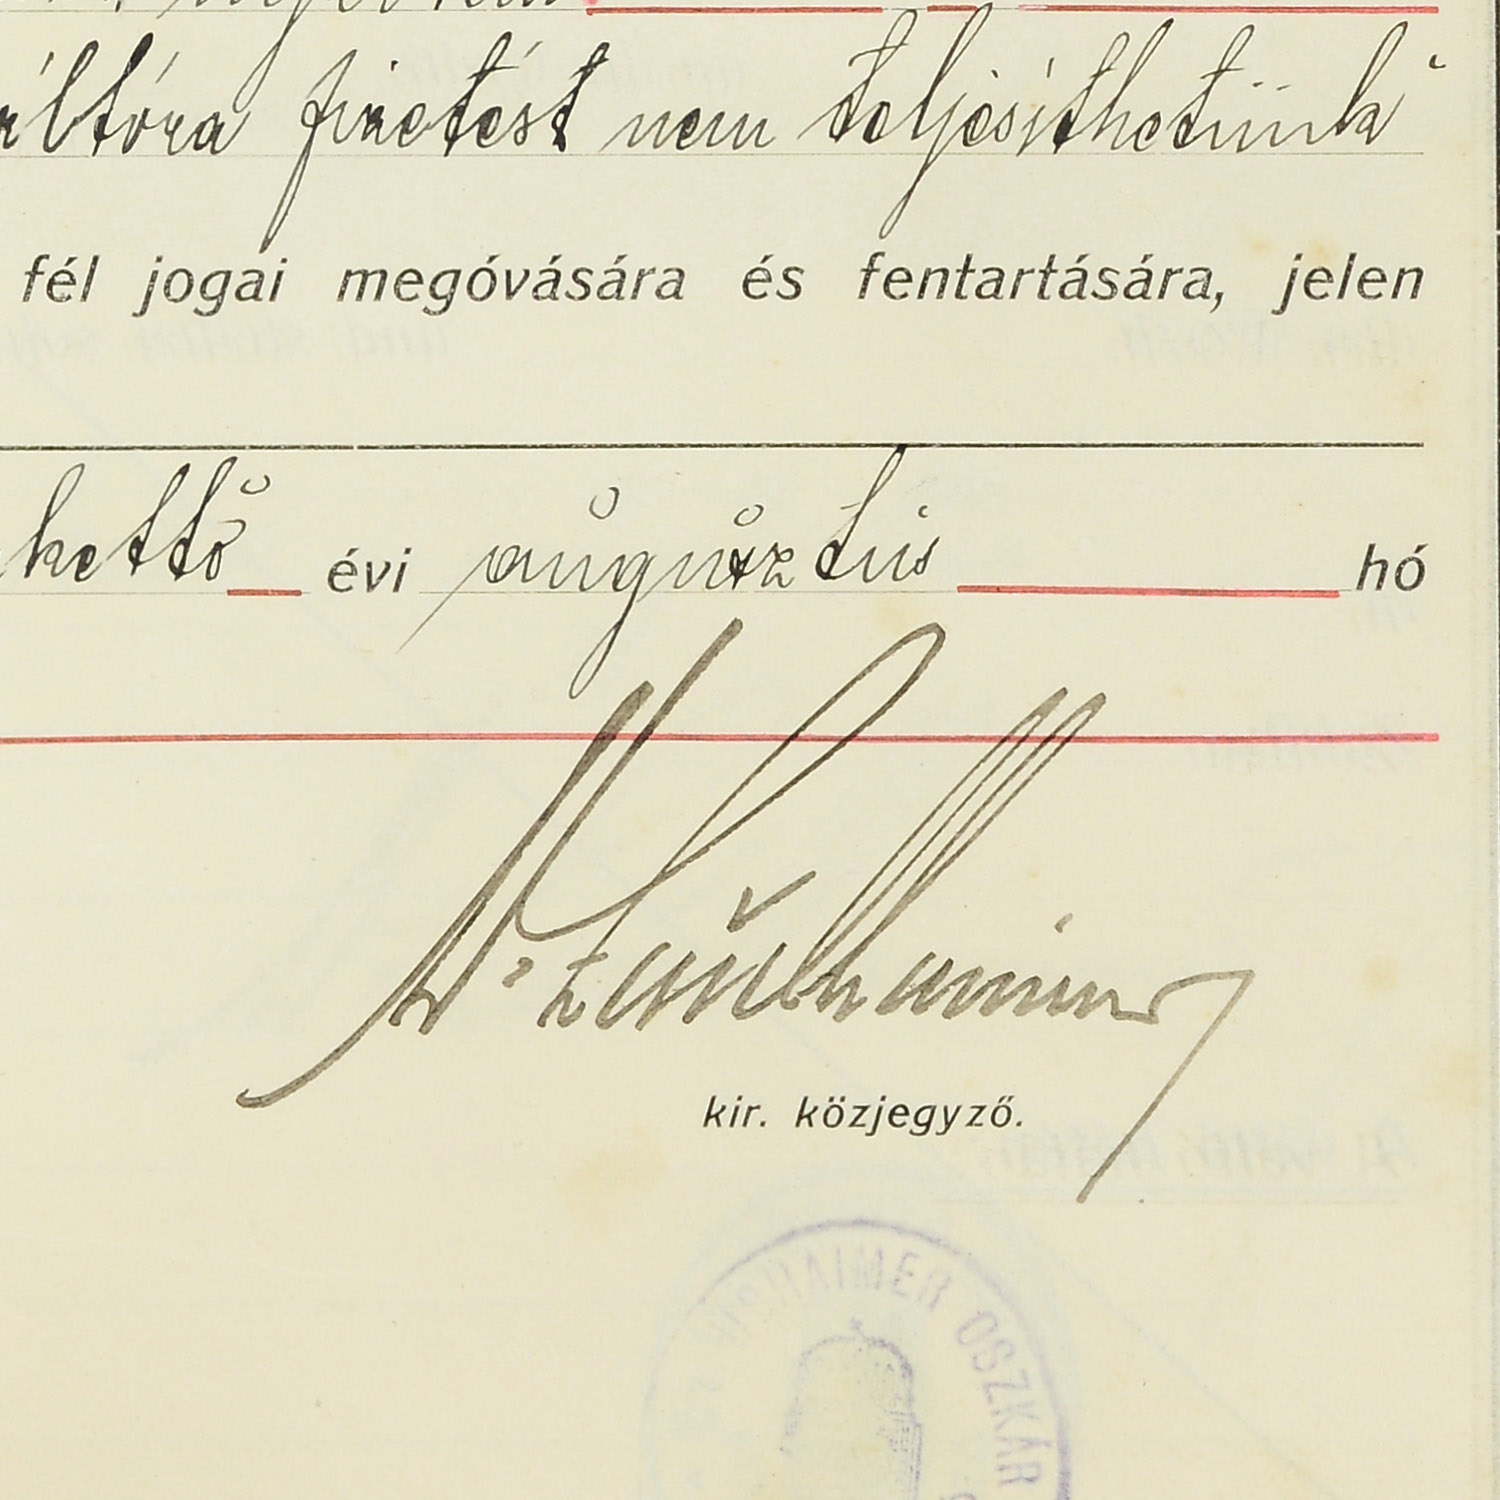 fizetést nem teljesíthetünk"
fél jogai megóvására és fentartására, jelen
kettő évi augusztus hó
kir. közjegyző.
HAIMER OSZKÁR